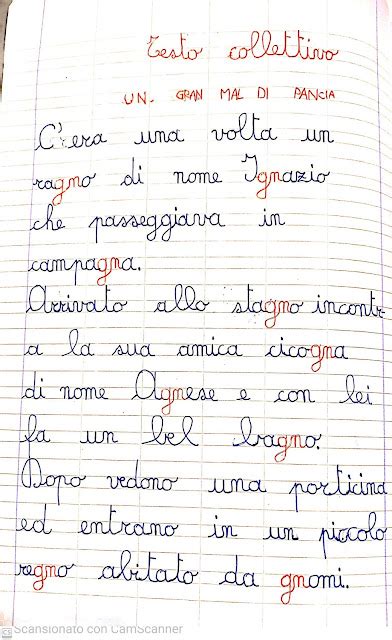 Testo collettivo
UN GRAN MAL DI PANCIA
C'era una volta un
ragno di nome Ignazio
che passeggiava in
campagna.
Arrivato allo stagno incontr
a la sua amica cicogna
di nome Agnese e con lei
fa un bel bagno.
Dopo vedono una porticina
ed entrano in un piccolo
regno abitato da gnomi.
CS Scansionato con CamScanner